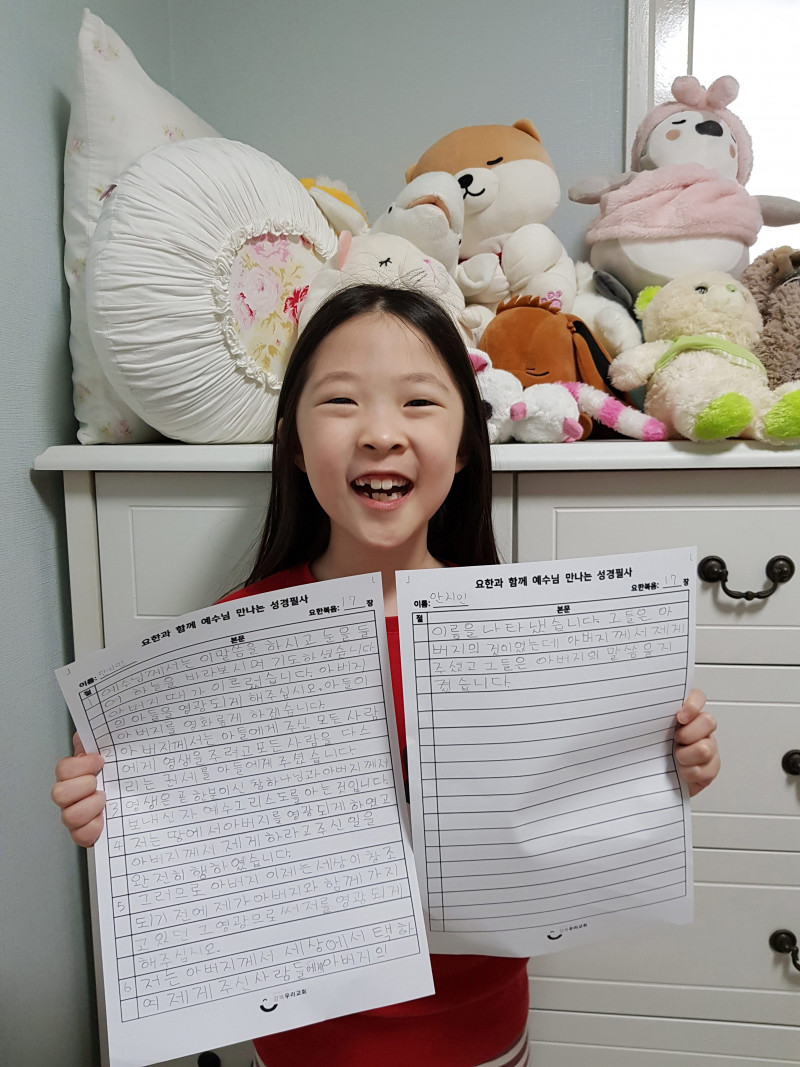 요한과 함께 예수님 만나는 성경필사
이름:
요한복음: 17 장
절 본문
1 예수님께서는 이 말씀을 하시고 눈을 들
어 하늘을 바라보시며 기도하셨습니다
아버지 때가 이르렀습니다. 아버지
의 아들을 영광되게 해주십시오. 아들이
아버지를 영화롭게 하겠습니다
2 아버지께서는 아들에게 주신 모든 사람
에게 영생을 주려고 모든 사람을 다스
리는 권세를 아들에게 주셨습니다
3 영생은 곧 한분이신 참하나님과 아버지께서
보내신 자 예수그리스도를 아는 것입니다.
4 저는 땅에서 아버지를 영광되게 하였고
아버지께서 제게 하라고 주신 일을
완전히 행하였습니다.
5 그러므로 아버지 이제는 세상이 창조
되기 전에 제가 아버지와 함께 가지
고 있던 그 영광으로써 저를 영광되게
해주십시오.
6 저는 아버지께서 세상에서 택하
여 제게 주신 사람들에게 아버지의
우리교회
요한과 함께 예수님 만나는 성경필사
이름: 안지인
요한복음: 17 장
절 본문
이름을 나타냈습니다. 그들은 아
버지의 것이었는데 아버지께서 제게
주셨고 그들은 아버지의 말씀을 지
켰습니다.
우리교회